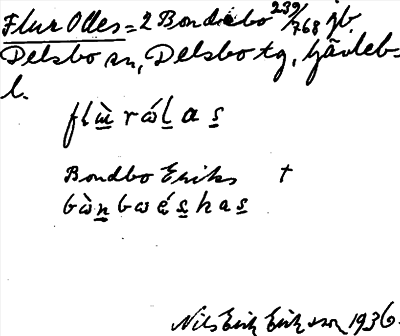 Flur Olles = 2 Bondebo 239/768 jb.
Delsbo sn, Delsbo tg, Gävleb.
l.
flù̱r ώḻas̱
Bondbo Eriks †
bὼṉbωés̱has̱
Nils Erik Eriksson 1936.